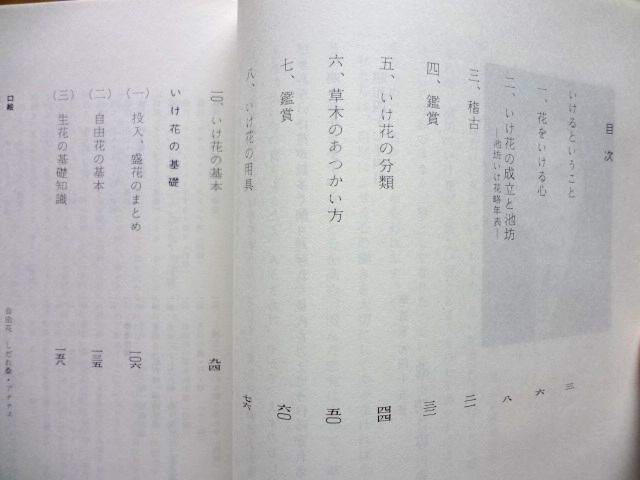 目次
いけるということ　三
一、花をいける心　六
二、いけ花の成立と池坊　八
―池坊いけ花略年表―
三、稽古　二一
四、鑑賞　三二
五、いけ花の分類　四四
六、草木のあつかい方　五〇
七、鑑賞　六〇
八、いけ花の用具　七六
一〇、いけ花の基本　九四
いけ花の基礎
（一）投入、盛花のまとめ　一〇六
（二）自由花の基本　一三五
（三）生花の基礎知識　一五八
口絵
自由花　しだれ桑・アナナス